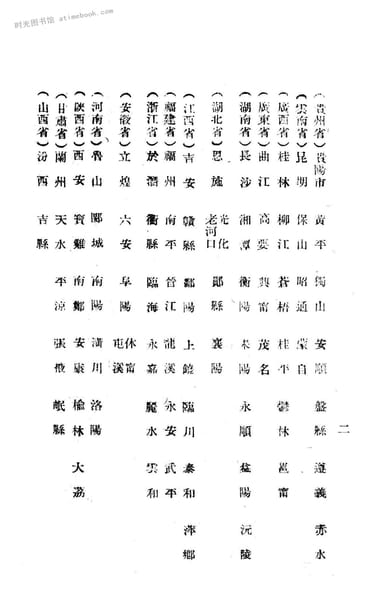 时光图书馆 atimebook.com
二
(貴州省)貴陽市 黃平 獨山 安順 盤縣 遵義 赤水
(雲南省)昆明 保山 昭通 蒙自
(廣西省)桂林 柳江 蒼梧 桂平 鬱林 邕甯
(廣東省)曲江 高要 興甯 茂名
(湖南省)長沙 湘潭 衡陽 耒陽 永順 益陽 沅陵
(湖北省)恩施 光化 老河口 鄖縣 襄陽
(江西省)吉安 贛縣 鄱陽 上饒 臨川 泰和 萍鄉
(福建省)福州 南平 晉江 龍溪 永安 武平
(浙江省)於潛 衢縣 臨海 永嘉 麗水 雲和
(安徽省)立煌 六安 阜陽 休甯 屯溪
(河南省)魯山 郾城 南陽 潢川 洛陽
(陝西省)西安 寶雞 南鄭 安康 榆林 大荔
(甘肅省)蘭州 天水 平涼 張掖 岷縣
(山西省)汾西 吉縣